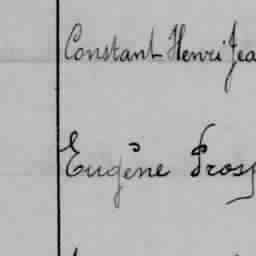 Constant Henri Jea
Eugène Prosp